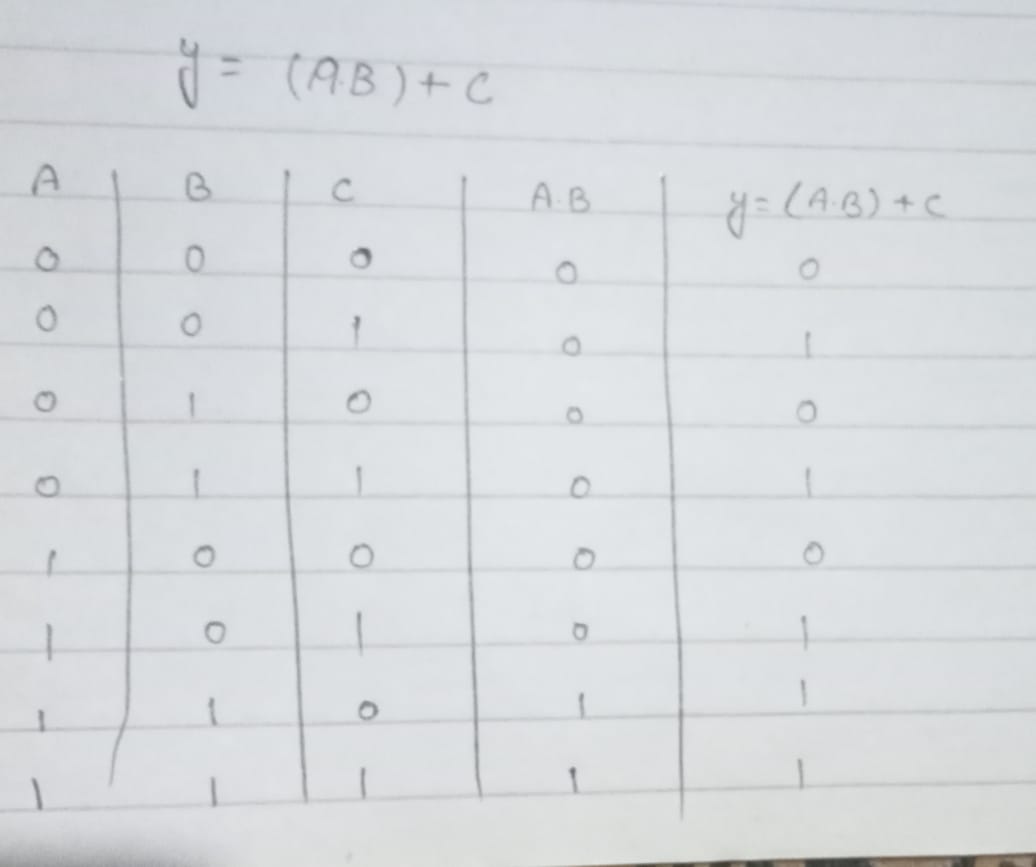 y = (A.B) + C
A B C A.B y = (A.B) + C
0 0 0 0 0
0 0 1 0 1
0 1 0 0 0
0 1 1 0 1
1 0 0 0 0
1 0 1 0 1
1 1 0 1 1
1 1 1 1 1